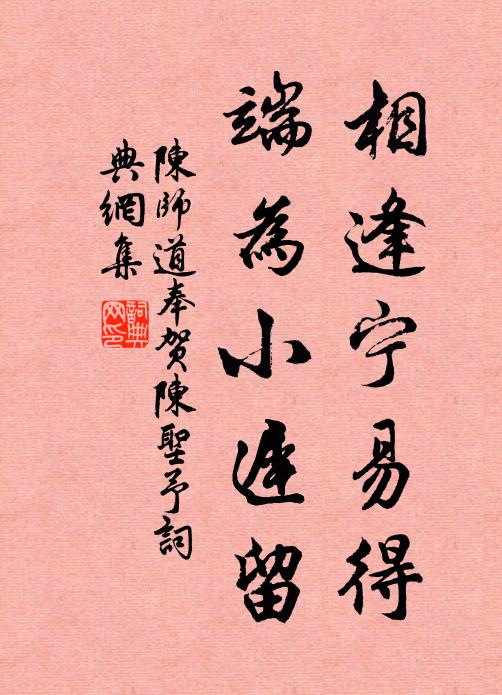 相逢宁易得
端為小遅留
陳師道奉賀陳聖予詞
典網集
詞典网印